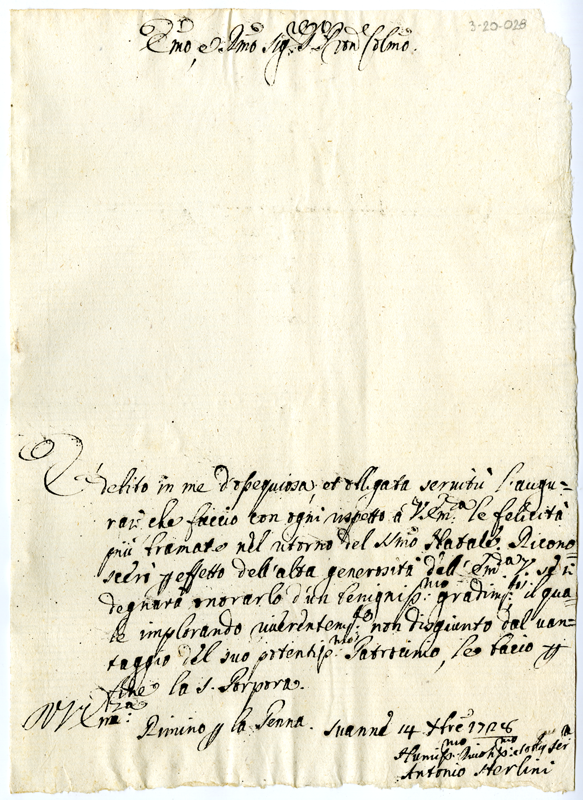 3-20-028
Emo, e Rmo Sig.r Pron Colmo.
Debito in me d'ossequiosa, et obligata servitù l'augu=
rar che faccio con ogni rispetto à V. Em.a le felicità
più bramate nel ritorno del Smo Natale. Ricono
scerò p effetto dell'alta generosità dell'Em.a V. se si
degnarà onorarlo d'un benignis.mo gradim.to il qua=
le implorando riverentem.te non disgiunto dal van=
taggio del suo potentis.mo Patrocinio, le bacio p
fine la s. Porpora.
Rimino p la Penna. 14 Xbre 1728
Antonio Sterlini